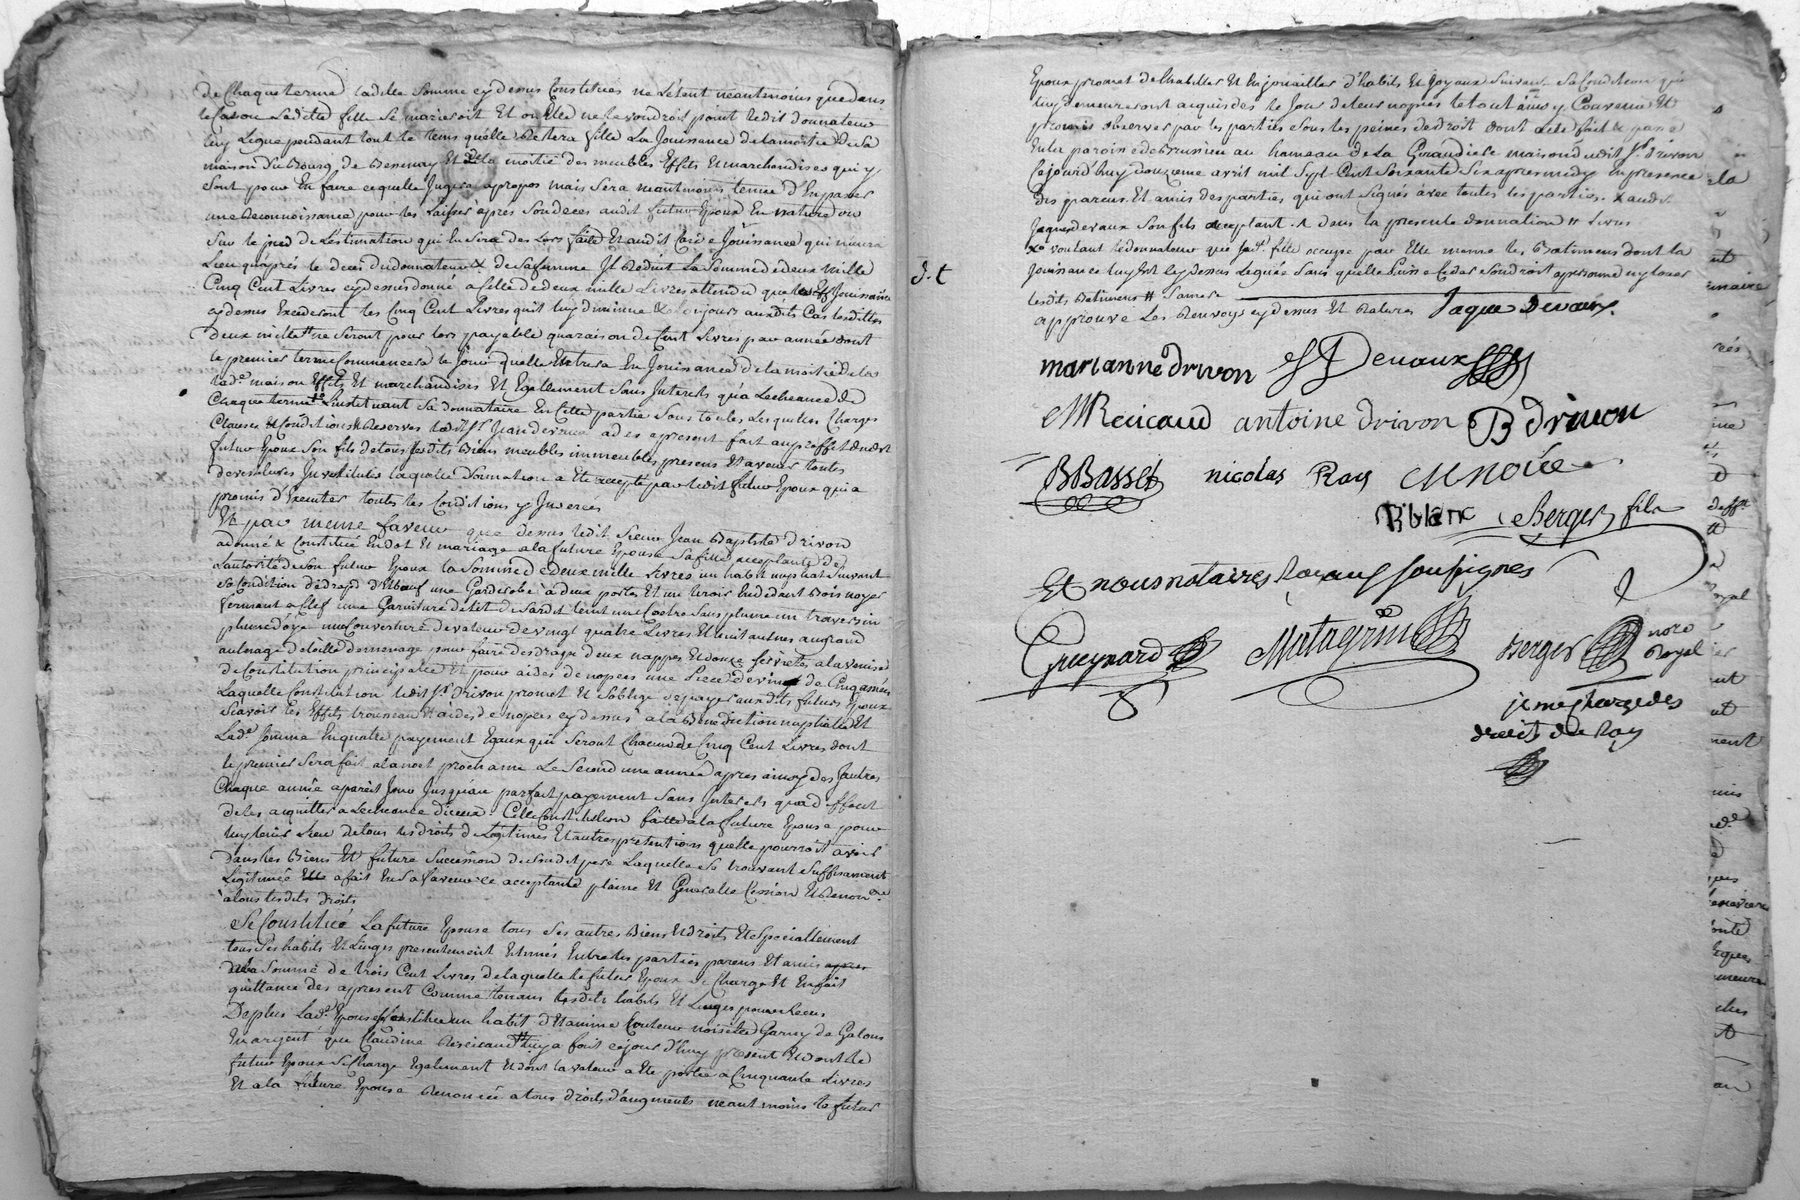 de Chaque terme ladite Somme cy dessus Constituée ne L'etant neantmoins que dans
le Cas ou Laditte fille Se marieroit Et ou Elle ne le voudroit point ledit donnateur
luy Legue pendant tout le tems quelle Restera fille La Jouissance de la moitié de Sa
maison du Bourg de Bessenay Et de la moitié des meubles Effets Et marchandises qui y
Sont pour En faire ce quelle Jugera apropos mais Sera neantmoins tenue d'En passer
une Reconnoissance pour les laisser apres Son deces audit futur Epoux En nature ou
Sur le pied de L'estimation qui En Sera des Lors faite Et audit Cas Jouissance qui n'aura
Lieu qu'aprés le deces du donnateur & de Sa femme Il Reduit La Somme de deux mille
Cinq Cent Livres cy dessus donné a Celle de deux mille Livres attendu que les Jouissance
cy dessus Excederont les Cinq Cent Livres qu'il luy diminue & toujours auxdits Cas lesdittes
deux mille tt ne Seront pour lors payable qu'a raison de Cent Livres par année dont
le premier terme Commencera le Jour quelle Entrera En Jouissance de la moitié de la
lade maison Effets Et marchandises Et Egallement Sans Interests qu'a L'echeance de
Chaque terme L'instituant Sa donnataire En Cette partie Sous toutes Lesquelles Charges
Clauses & Conditions & Reserves Ledit Sr Jean devaux a des apresent fait au proffit dudit
futur Epoux Son fils de tous Lesdits Biens meubles immeubles presens Et avenir toutes
devestitures Investitures laquelle donnation a Ete accepté par ledit futur Epoux qui a
promis d'Executer toutes les Conditions y Inserées
Et par meme faveur que dessus ledit Sieur Jean Baptiste Drivon
a donné & Constitué En dot Et mariage a la future Epouse Sa fille acceptante de
L'autorité de Son futur Epoux la Somme de deux mille Livres un habit nuptial Suivant
Sa Condition de drap d'Elbeuf une Garderobe à deux portes Et un tiroir En dedans Bois noyer
fermant a Clef une Garniture de lit de Cadis teint une Coetre Sans plume un traversin
plume d'oye une Couverture de valeur de vingt quatre Livres Et huit autnes au grand
aulnage de toille de menage pour faire des draps deux nappes Et douze Serviettes a la venise
de Constitution principalle Et pour aides de nopces une piece de vin de Cinq asnées
Laquelle Constitution ledit Sr Drivon promet Et S'oblige de payer auxdits futurs Epoux
Scavoir les Effets trousseau Et aides de nopces cy dessus a la Benediction nuptialle Et
Lade Somme En quatre payement Egaux qui Seront Chacun de Cinq Cent Livres dont
le premier Sera fait a la noel prochaine Le Second une année apres ainsy des Jautres
Chaque année a pareil Jour Jusqu'au parfait payement Sans Interests qu'a deffaut
de les acquitter a L'echeance d'iceux Cette Constitution faitte a la future Epouse pour
luy tenir Lieu de tous Ses droits de Legitimes Et autres pretentions quelle pourroit avoir
dans les Biens Et future Succession dudit pere Laquelle Se trouvant Suffisament
Legitimée a fait En Sa faveur ce acceptante plaine Et Generalle Cession Et Renonon
a tous lesdits droits
Se Constitue La future Epouse tous Ses autres Biens & droits Et Specialement
tous Ses habits Et Linges presentement Estimés Entre les parties parens Et amis
a la Somme de trois Cent Livres de laquelle le futur Epoux Se Charge Et En fait
quittance des apresent Comme tenant lesdits habits Et Linges pour Receus
De plus Lade Epouse Constitue un habit d'Etamine Couleur noisette Garny de Galons
En argent que Claudine Reveicaud luy a fait cejourd'huy present & dont le
futur Epoux Se Charge Egalement & dont la valeur a Ete portée a Cinquante Livres
Et a la future Epouse Renoncée a tous droits d'augments neant moins le futur
Epoux promet de l'habiller Et Enjoailler d'habits Et Joyaux Suivant Sa Condition qui
luy demeureront acquis des le Jour de leurs nopces le tout ainsy Convenu Et
promis observer par les parties Sous les peines de droit dont acte fait & passé
En la paroisse de Brussieu au hameau de La Giraudiere maison dudit Sr Drivon
Cejourd'huy douzieme avril mil Sept Cent Soixante Six apres midy En presence
des parens Et amis des parties qui ont Signés avec toutes les parties. & audit
Jaques devaux Son fils acceptant. dans la presente donnation tt Livres
voulant le donnateur que Sad. fille occupe par Elle meme les Batimens dont la
Jouissance luy Est cy dessus Leguée Sans quelle puisse Ceder Son droit a personne ny louer
lesdits Batimens tt Somme
approuve Les Renvoys cy dessus Et Ratures Jaque Devaux
d. t
marianne drivon JDevaux
MReuicaud antoine drivon B drivon
BBasset nicolas Ray CMnoüée
Riblanc Berger fils
Et nous notaires Royaux soussignes
Gueynard Matagrin Berger nore Royal
je me charge des
droits du Roy